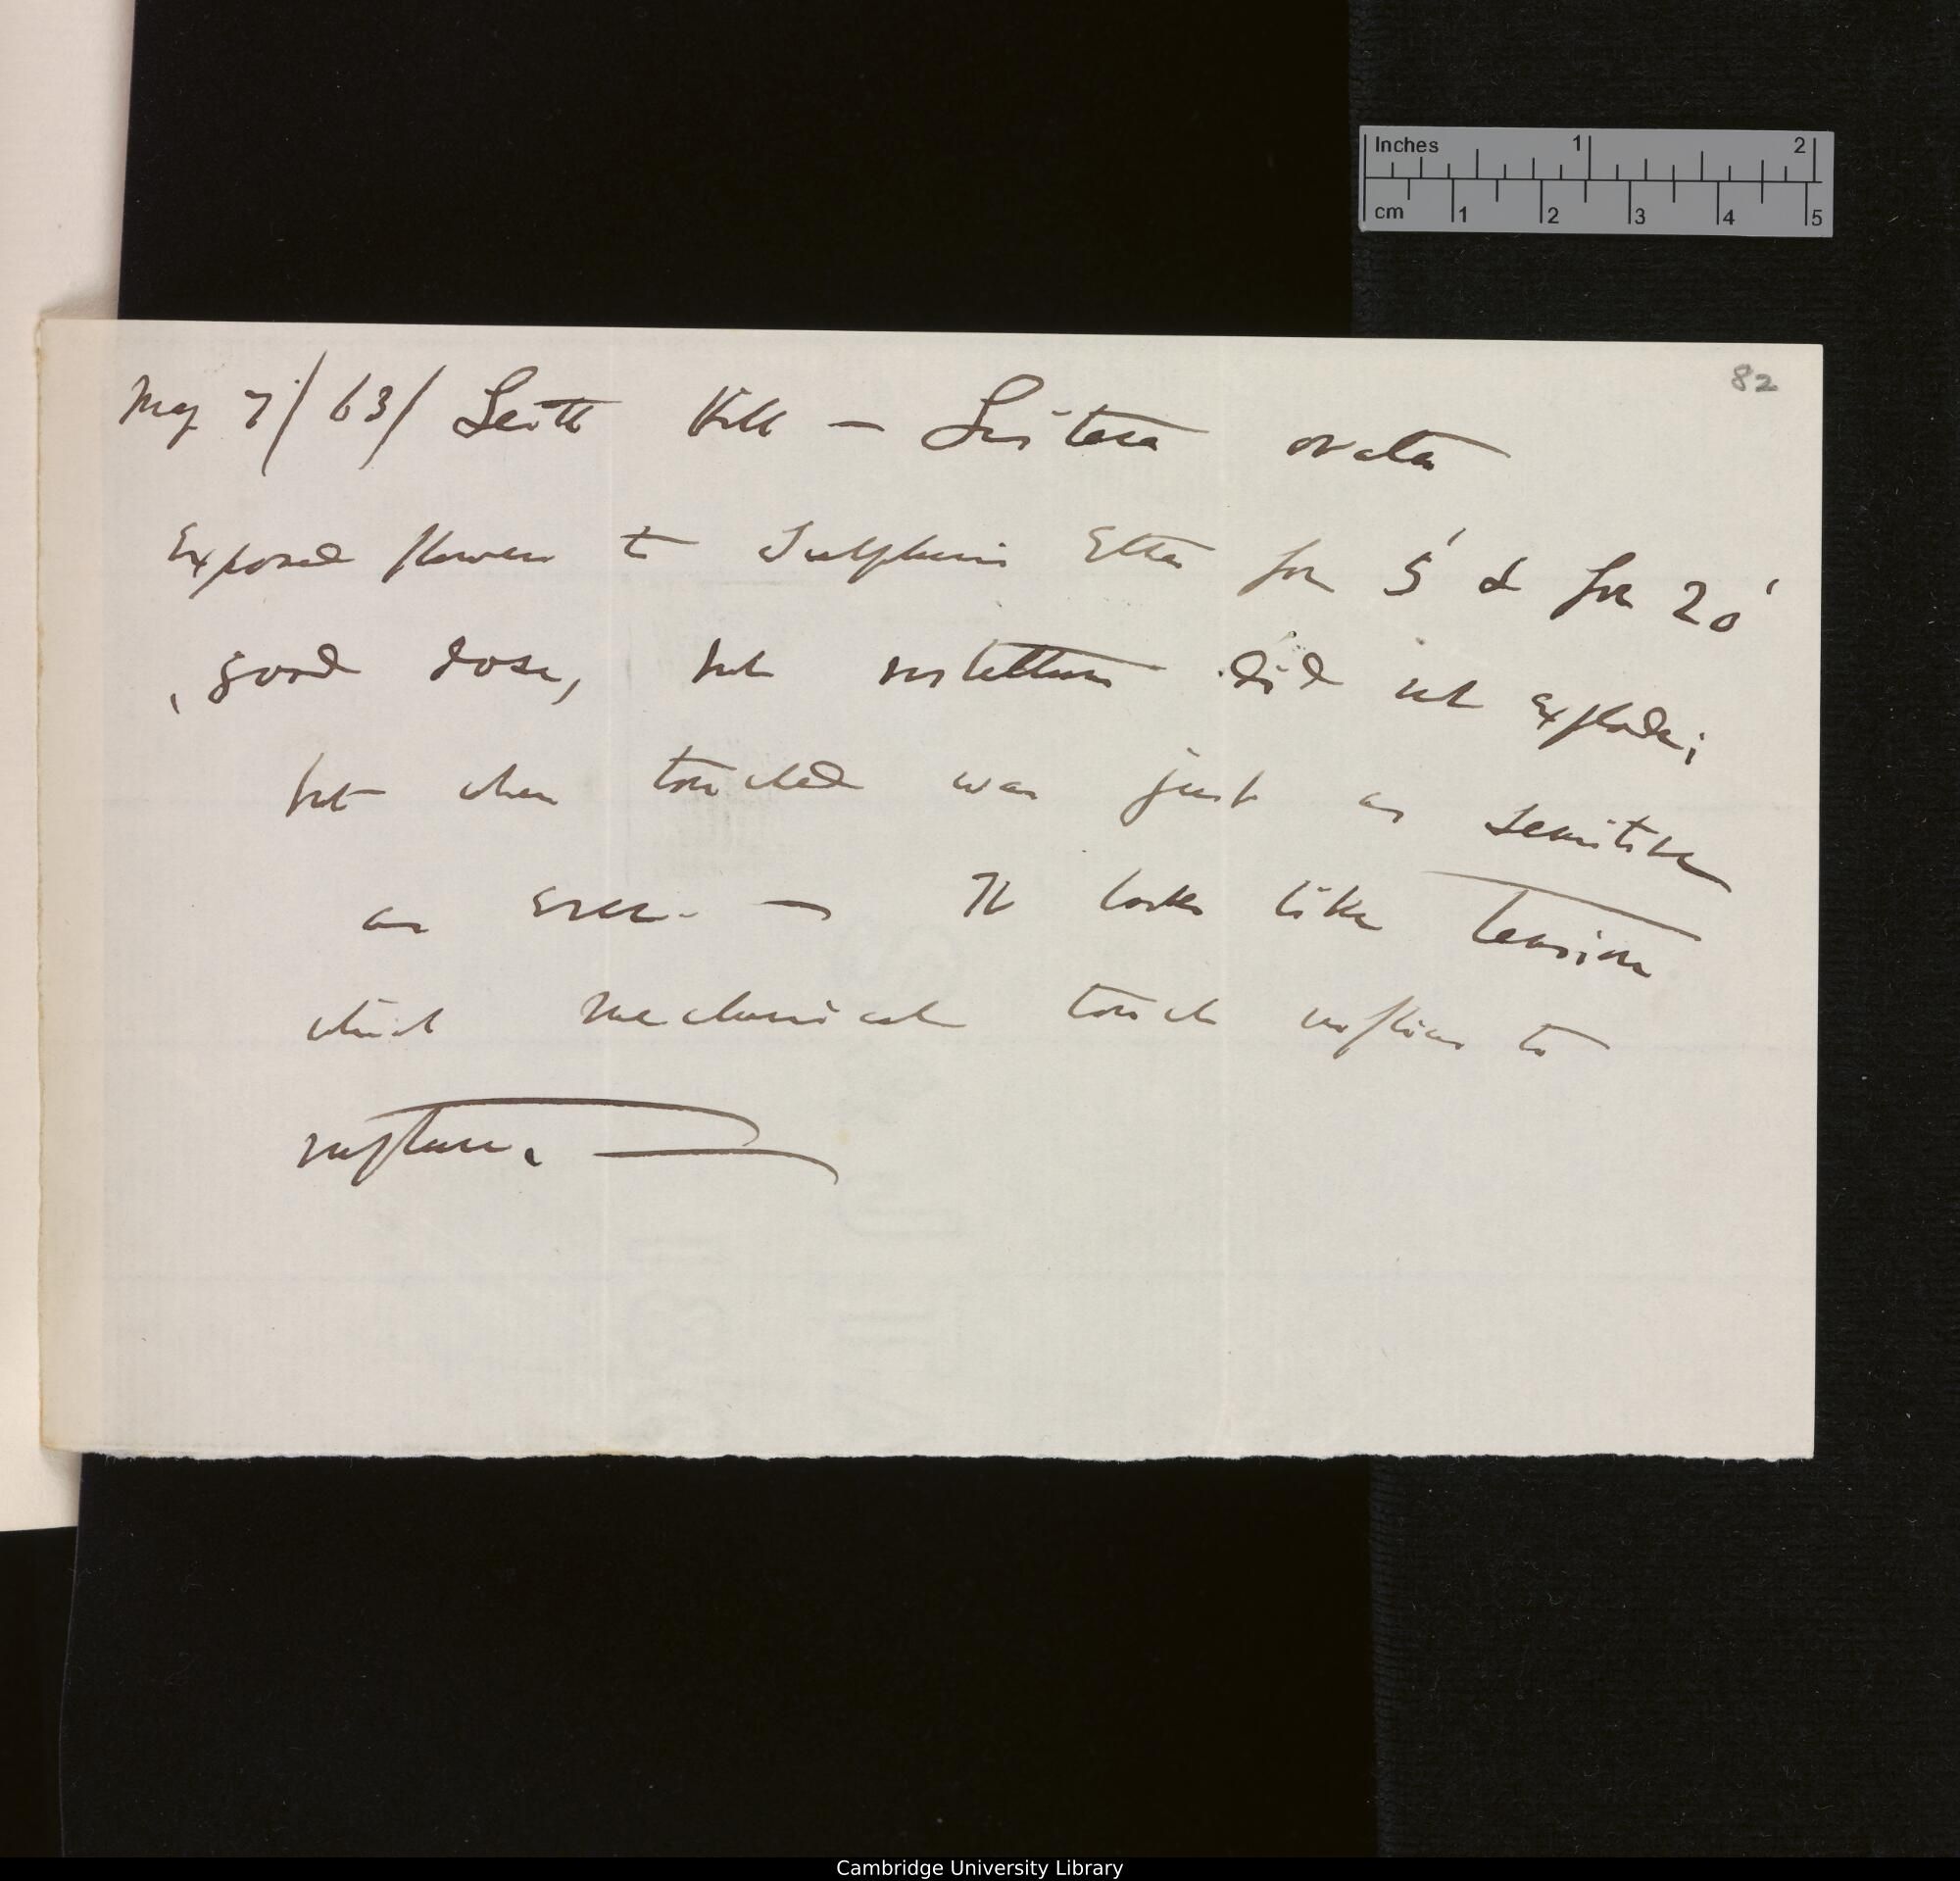 82
May 7/63/ Leith Hill — Listera ovata
Exposed flowers to Sulphuric Ether for 5' & for 20'
, good dose, but rostellum did not explode;
but when touched was just as sensitive
as ever. — It looks like Tension
which mechanical touch to
rupture. —
Inches 1 2
cm 1 2 3 4 5
Cambridge University Library